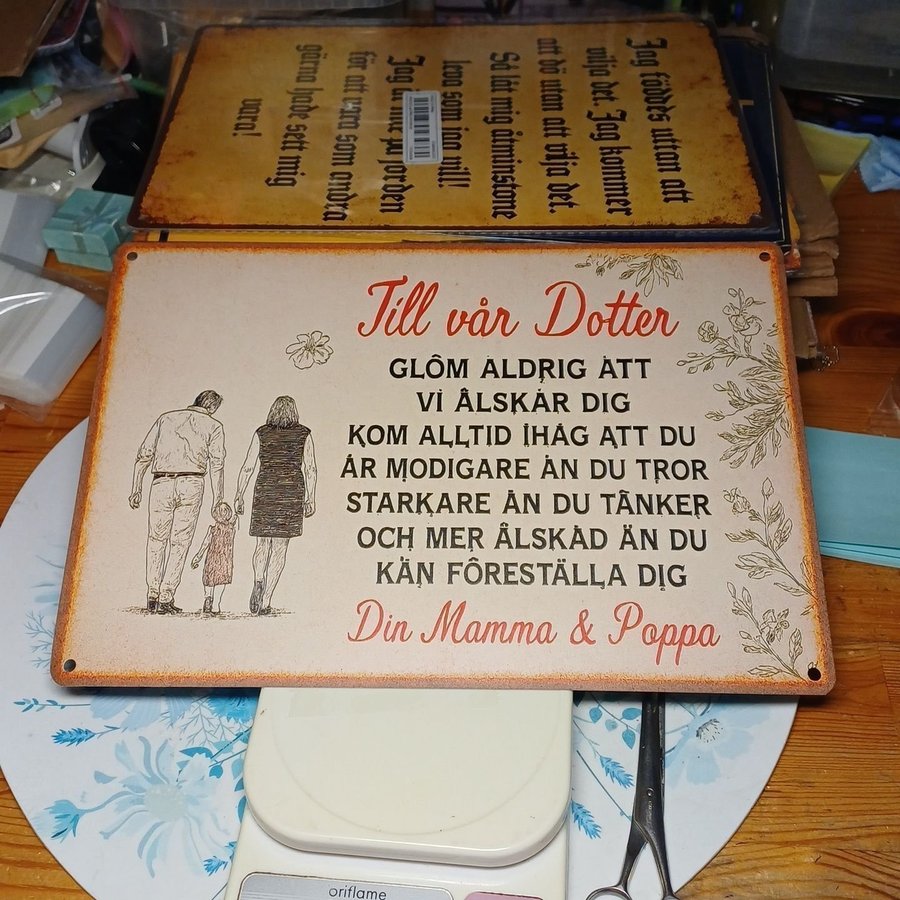 Jag föddes uttan att
vilja det. Jag kommer
att dö utan att vilja det.
Så låt mig åtminstone
leva som jag vill!
Jag
för att vara som andra
gärna hade sett mig
vara!
Till vår Dotter
GLÔM ALDRIG ATT
VI ÂLSKAR DIG
KOM ALLTID IHÅG ATT DU
ÄR MODIGARE ÄN DU TROR
STARKARE ÄN DU TÂNKER
OCH MER ÂLSKAD ÄN DU
KÄN FÔRESTÄLLA DIG
Din Mamma & Poppa
oriflame